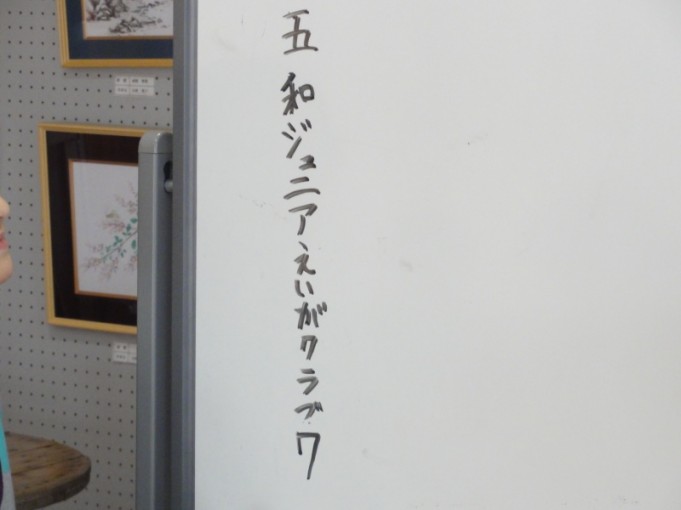 五和ジュニアえいがクラブ7